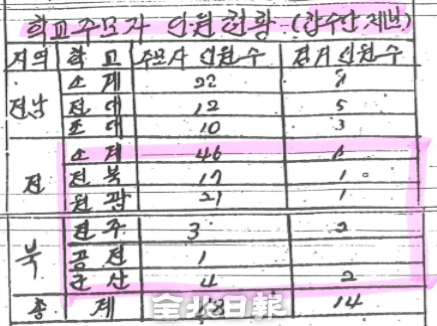 학교주모자 인원현황 (합수단 제보)
지역 학교 주모자 인원수 검거 인원수
전남 소계 22 8
전대 12 5
조대 10 3
전북 소계 46 6
전북 17 1
원광 21 1
전주 3 2
공전 1
군산 4 2
총계 68 14
全北日報